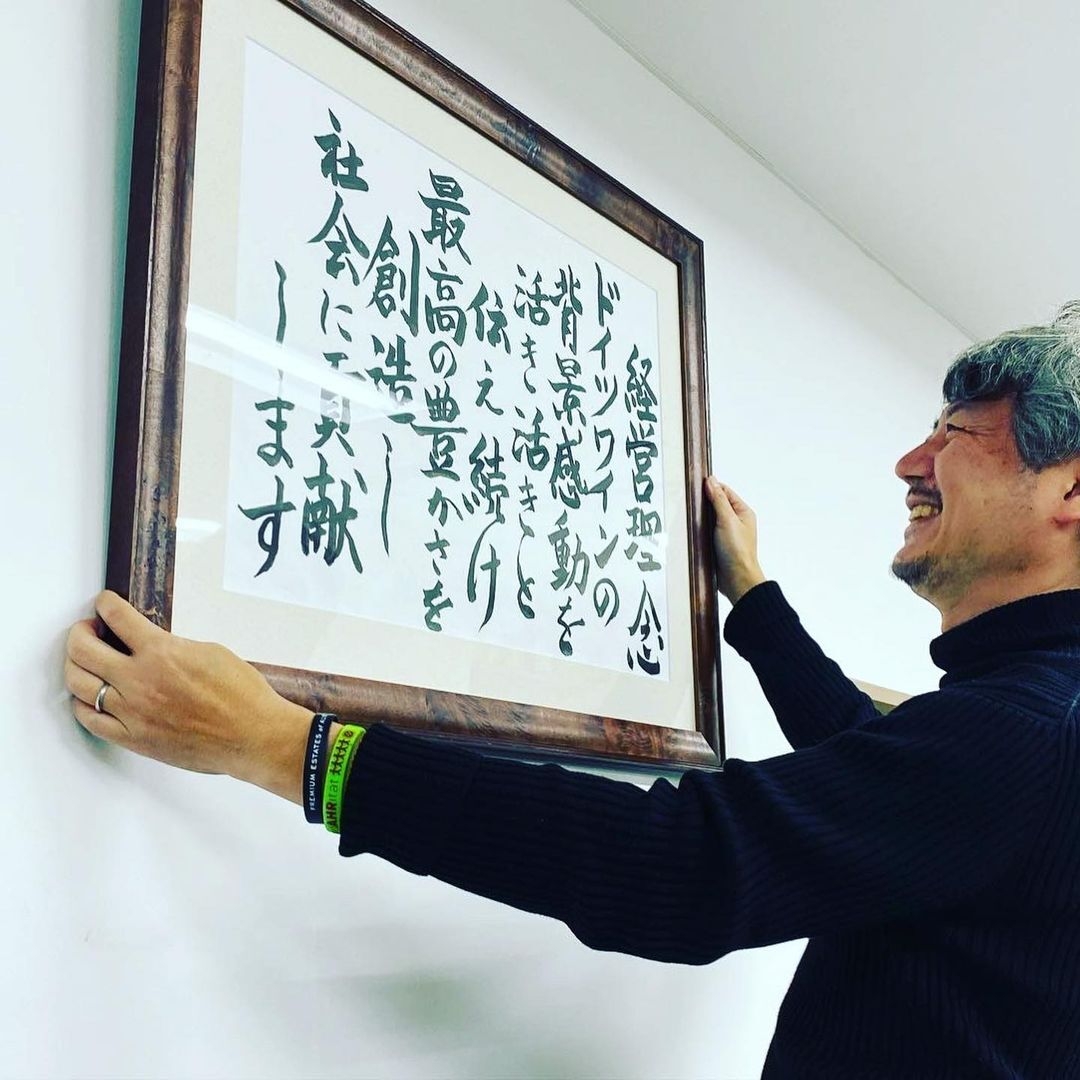 経営理念
ドイツワインの
背景感動を
活き活きと
伝え続け
最高の豊かさを
創造し
社会に貢献
します
PREMIUM ESTATES of
AHRität